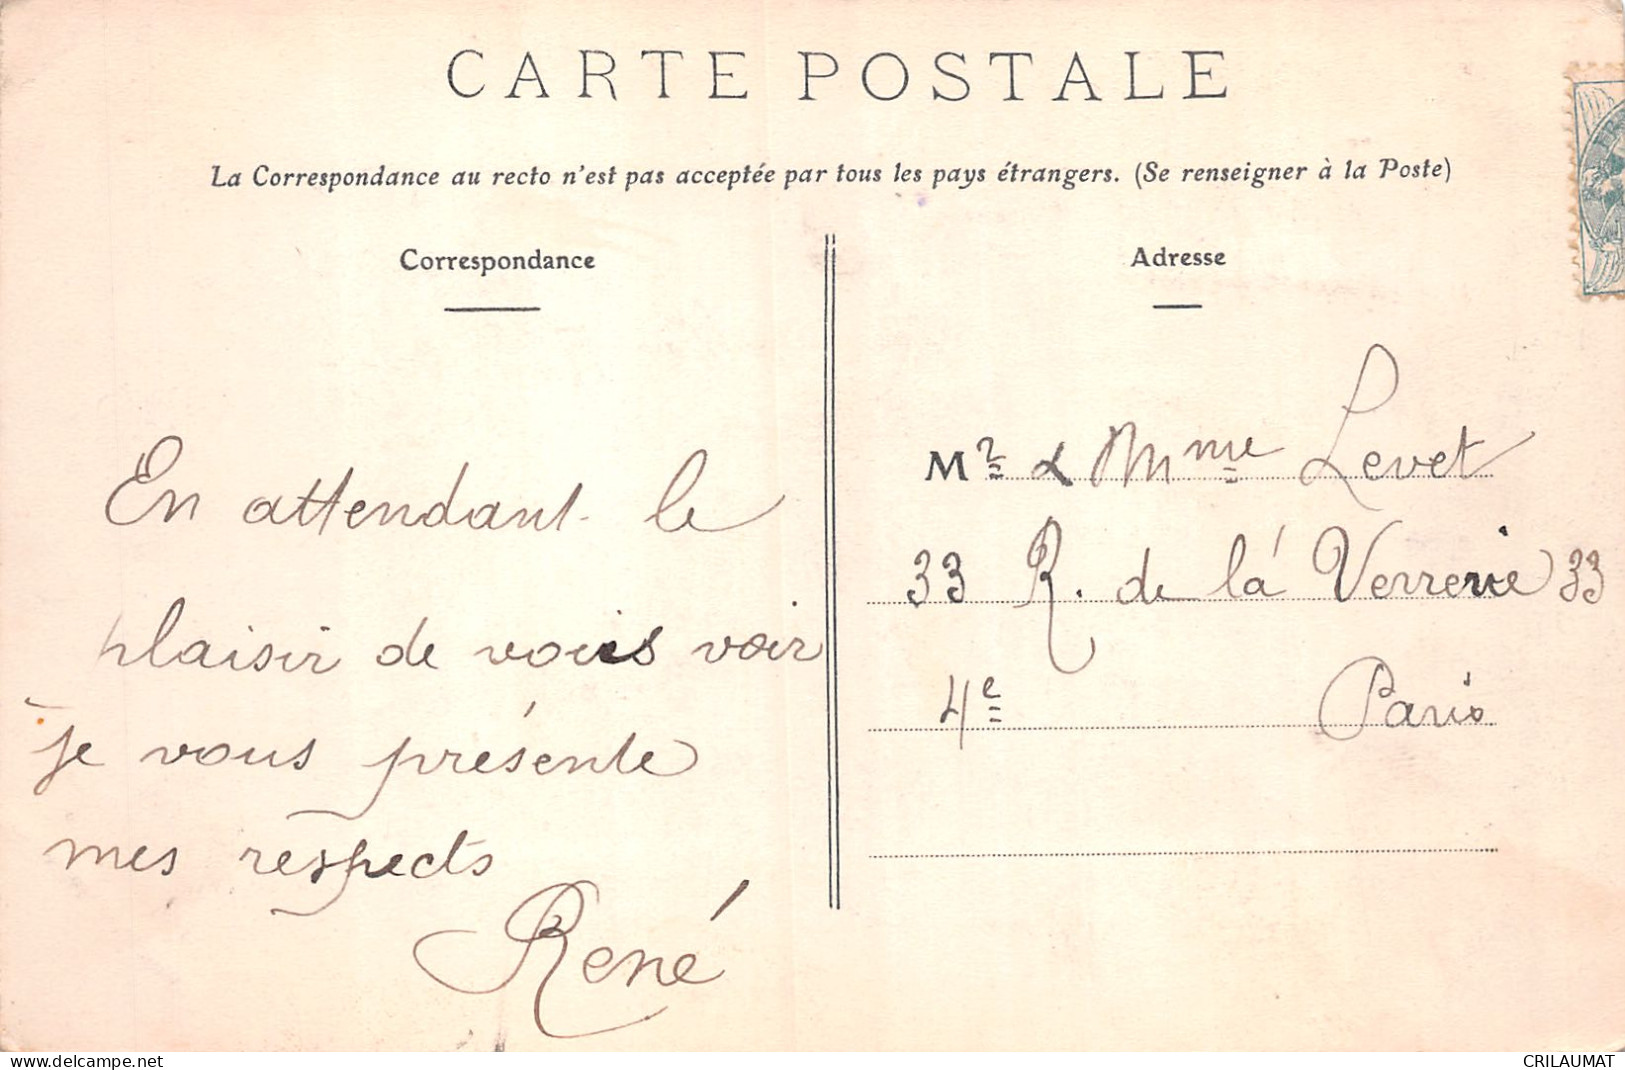 CARTE POSTALE
La Correspondance au recto n'est pas acceptée par tous les pays étrangers. (Se renseigner à la Poste)
Correspondance
En attendant le
plaisir de vous voir
je vous présente
mes respects
René
Adresse
Mr & Mme Levet
33 R. de la Verrerie 33
4e Paris
www.delcampe.net
CRILAUMAT